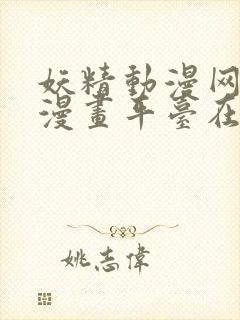 妖精動漫网
漫畫平臺在
姚志偉